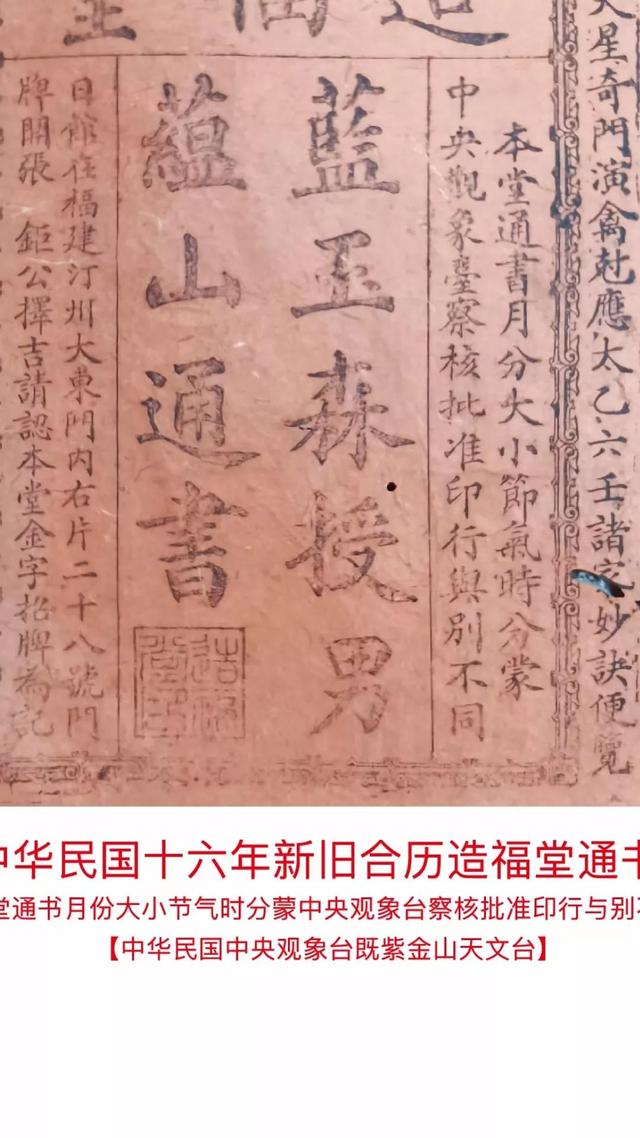 星奇門演禽尅應太乙六壬諸家妙訣便覽
本堂通書月分大小節氣時分蒙
中央觀象臺察核批准印行與別不同
藍玉森授男
蘊山通書
造福堂印
日館在福建汀州大東門內右片二十八號門
牌開張 鉅公擇吉請認本堂金字招牌為記
中华民国十六年新旧合历造福堂通书
堂通书月份大小节气时分蒙中央观象台察核批准印行与别
【中华民国中央观象台既紫金山天文台】